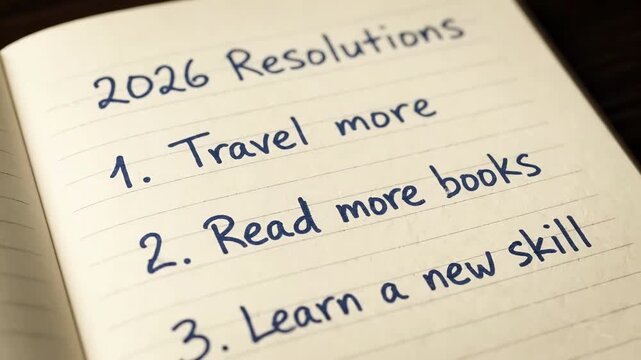 2026 Resolutions
1. Travel more
2. Read more books
3. Learn a new skill